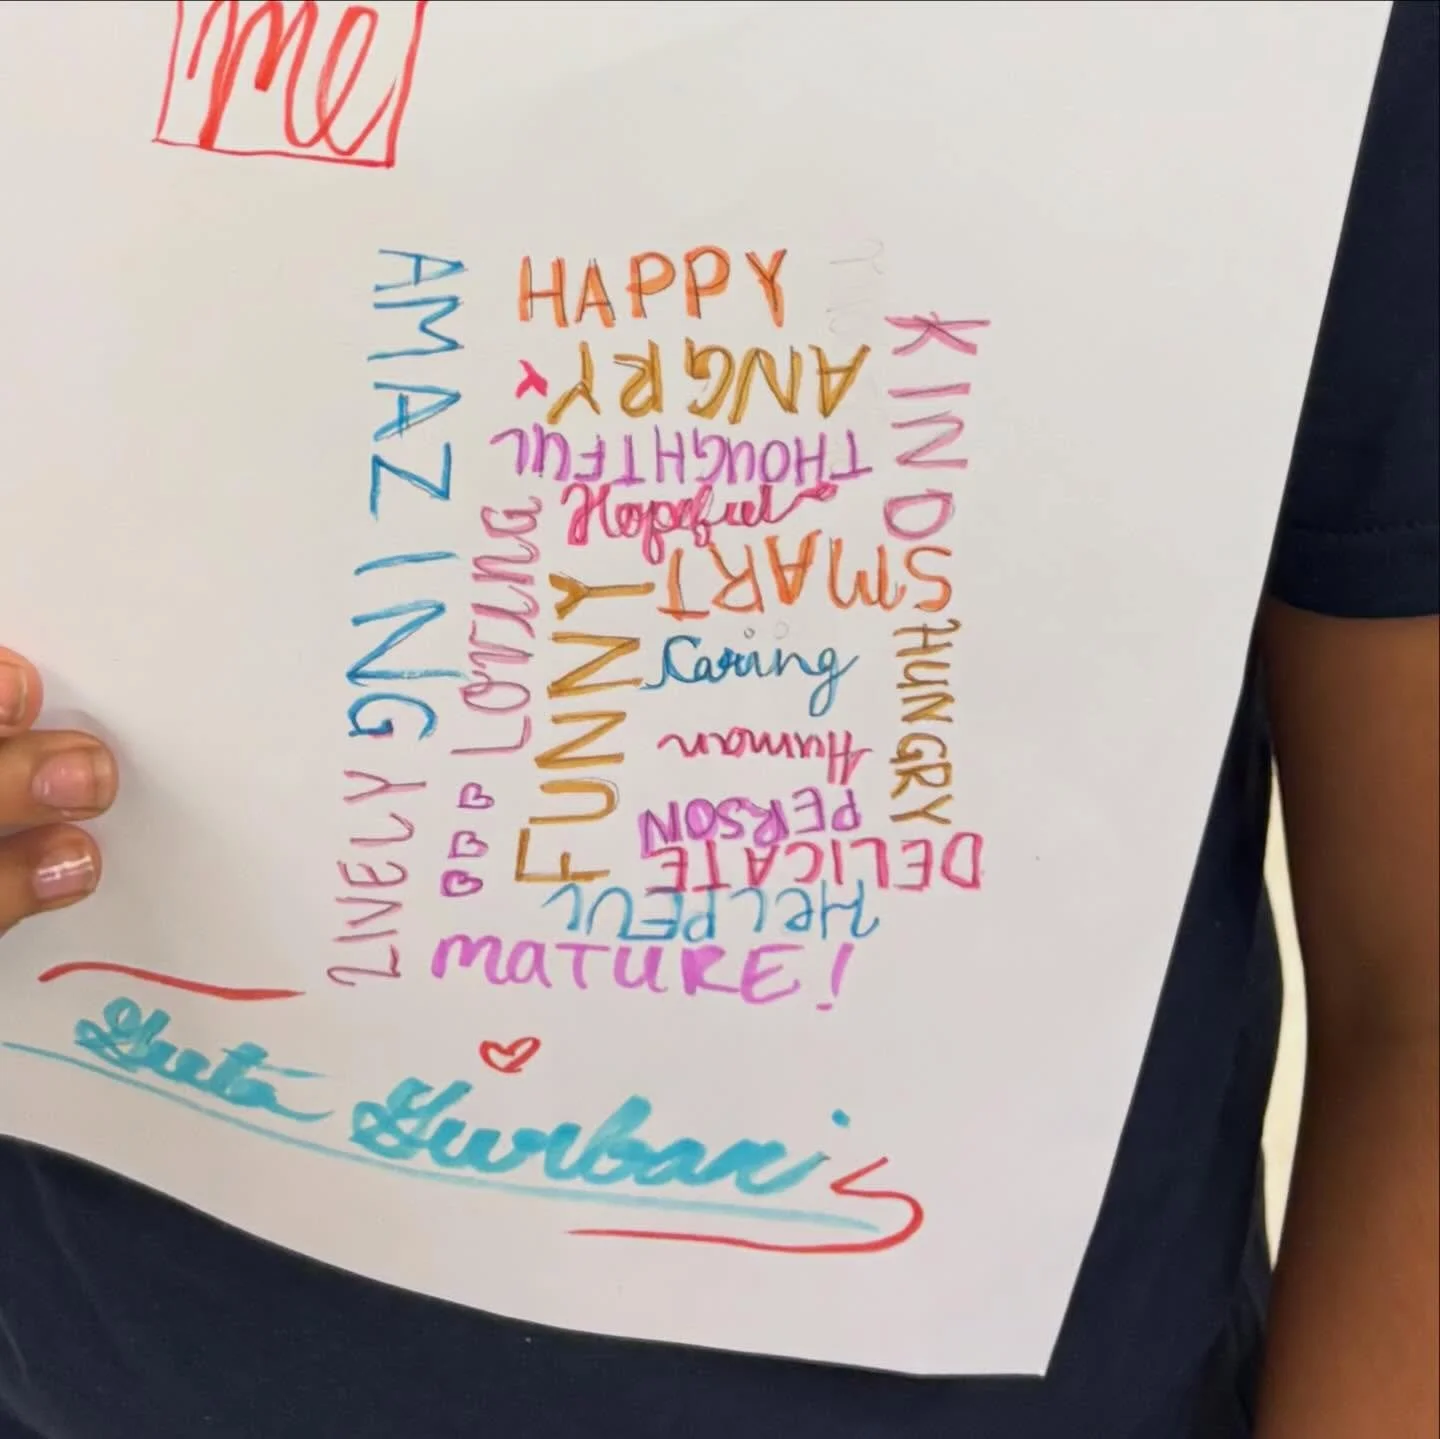 me
AMAZING
HAPPY
KIND
ANGRY
THOUGHTFUL
Hopeful
Loving
SMART
FUNNY
Caring
HUNGRY
Human
PERSON
LIVELY
DELICATE
HeLPFUL
maTURE!
Gurbani